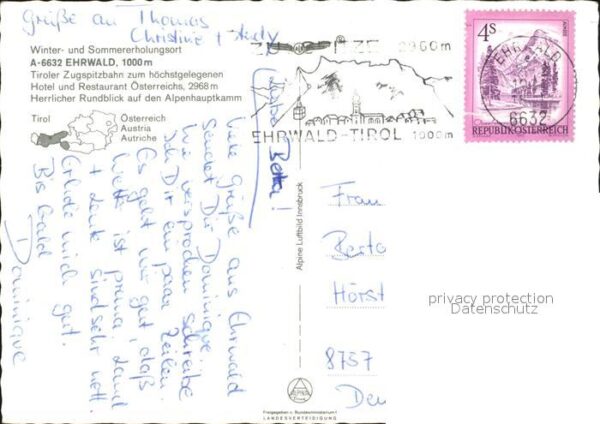 Grüße an Thomas
Christine + Andy
Winter- und Sommererholungsort
A-6632 EHRWALD, 1000 m
Tiroler Zugspitzbahn zum höchstgelegenen
Hotel und Restaurant Österreichs, 2968 m
Herrlicher Rundblick auf den Alpenhauptkamm
Tirol
Österreich
Austria
Autriche
ITZE 2960m
EHRWALD-TIROL 1000m
4S
REPUBLIK ÖSTERREICH
EHRWALD
6632
Liebe
Betta!
Viele Grüße aus Ehrwald
sendet Dir Dominique.
Wie versprochen schreibe
ich Dir ein paar Zeilen.
Es geht mir gut, daß
Wetter ist prima, Land
+ Leute sind sehr nett.
Erhole mich gut.
Bis bald
Dominique
Alpine Luftbild Innsbruck
Frau
Hörst
8757
privacy protection
Datenschutz
ALPINE
Freigegeben v. Bundesministerium f.
LANDESVERTEIDIGUNG